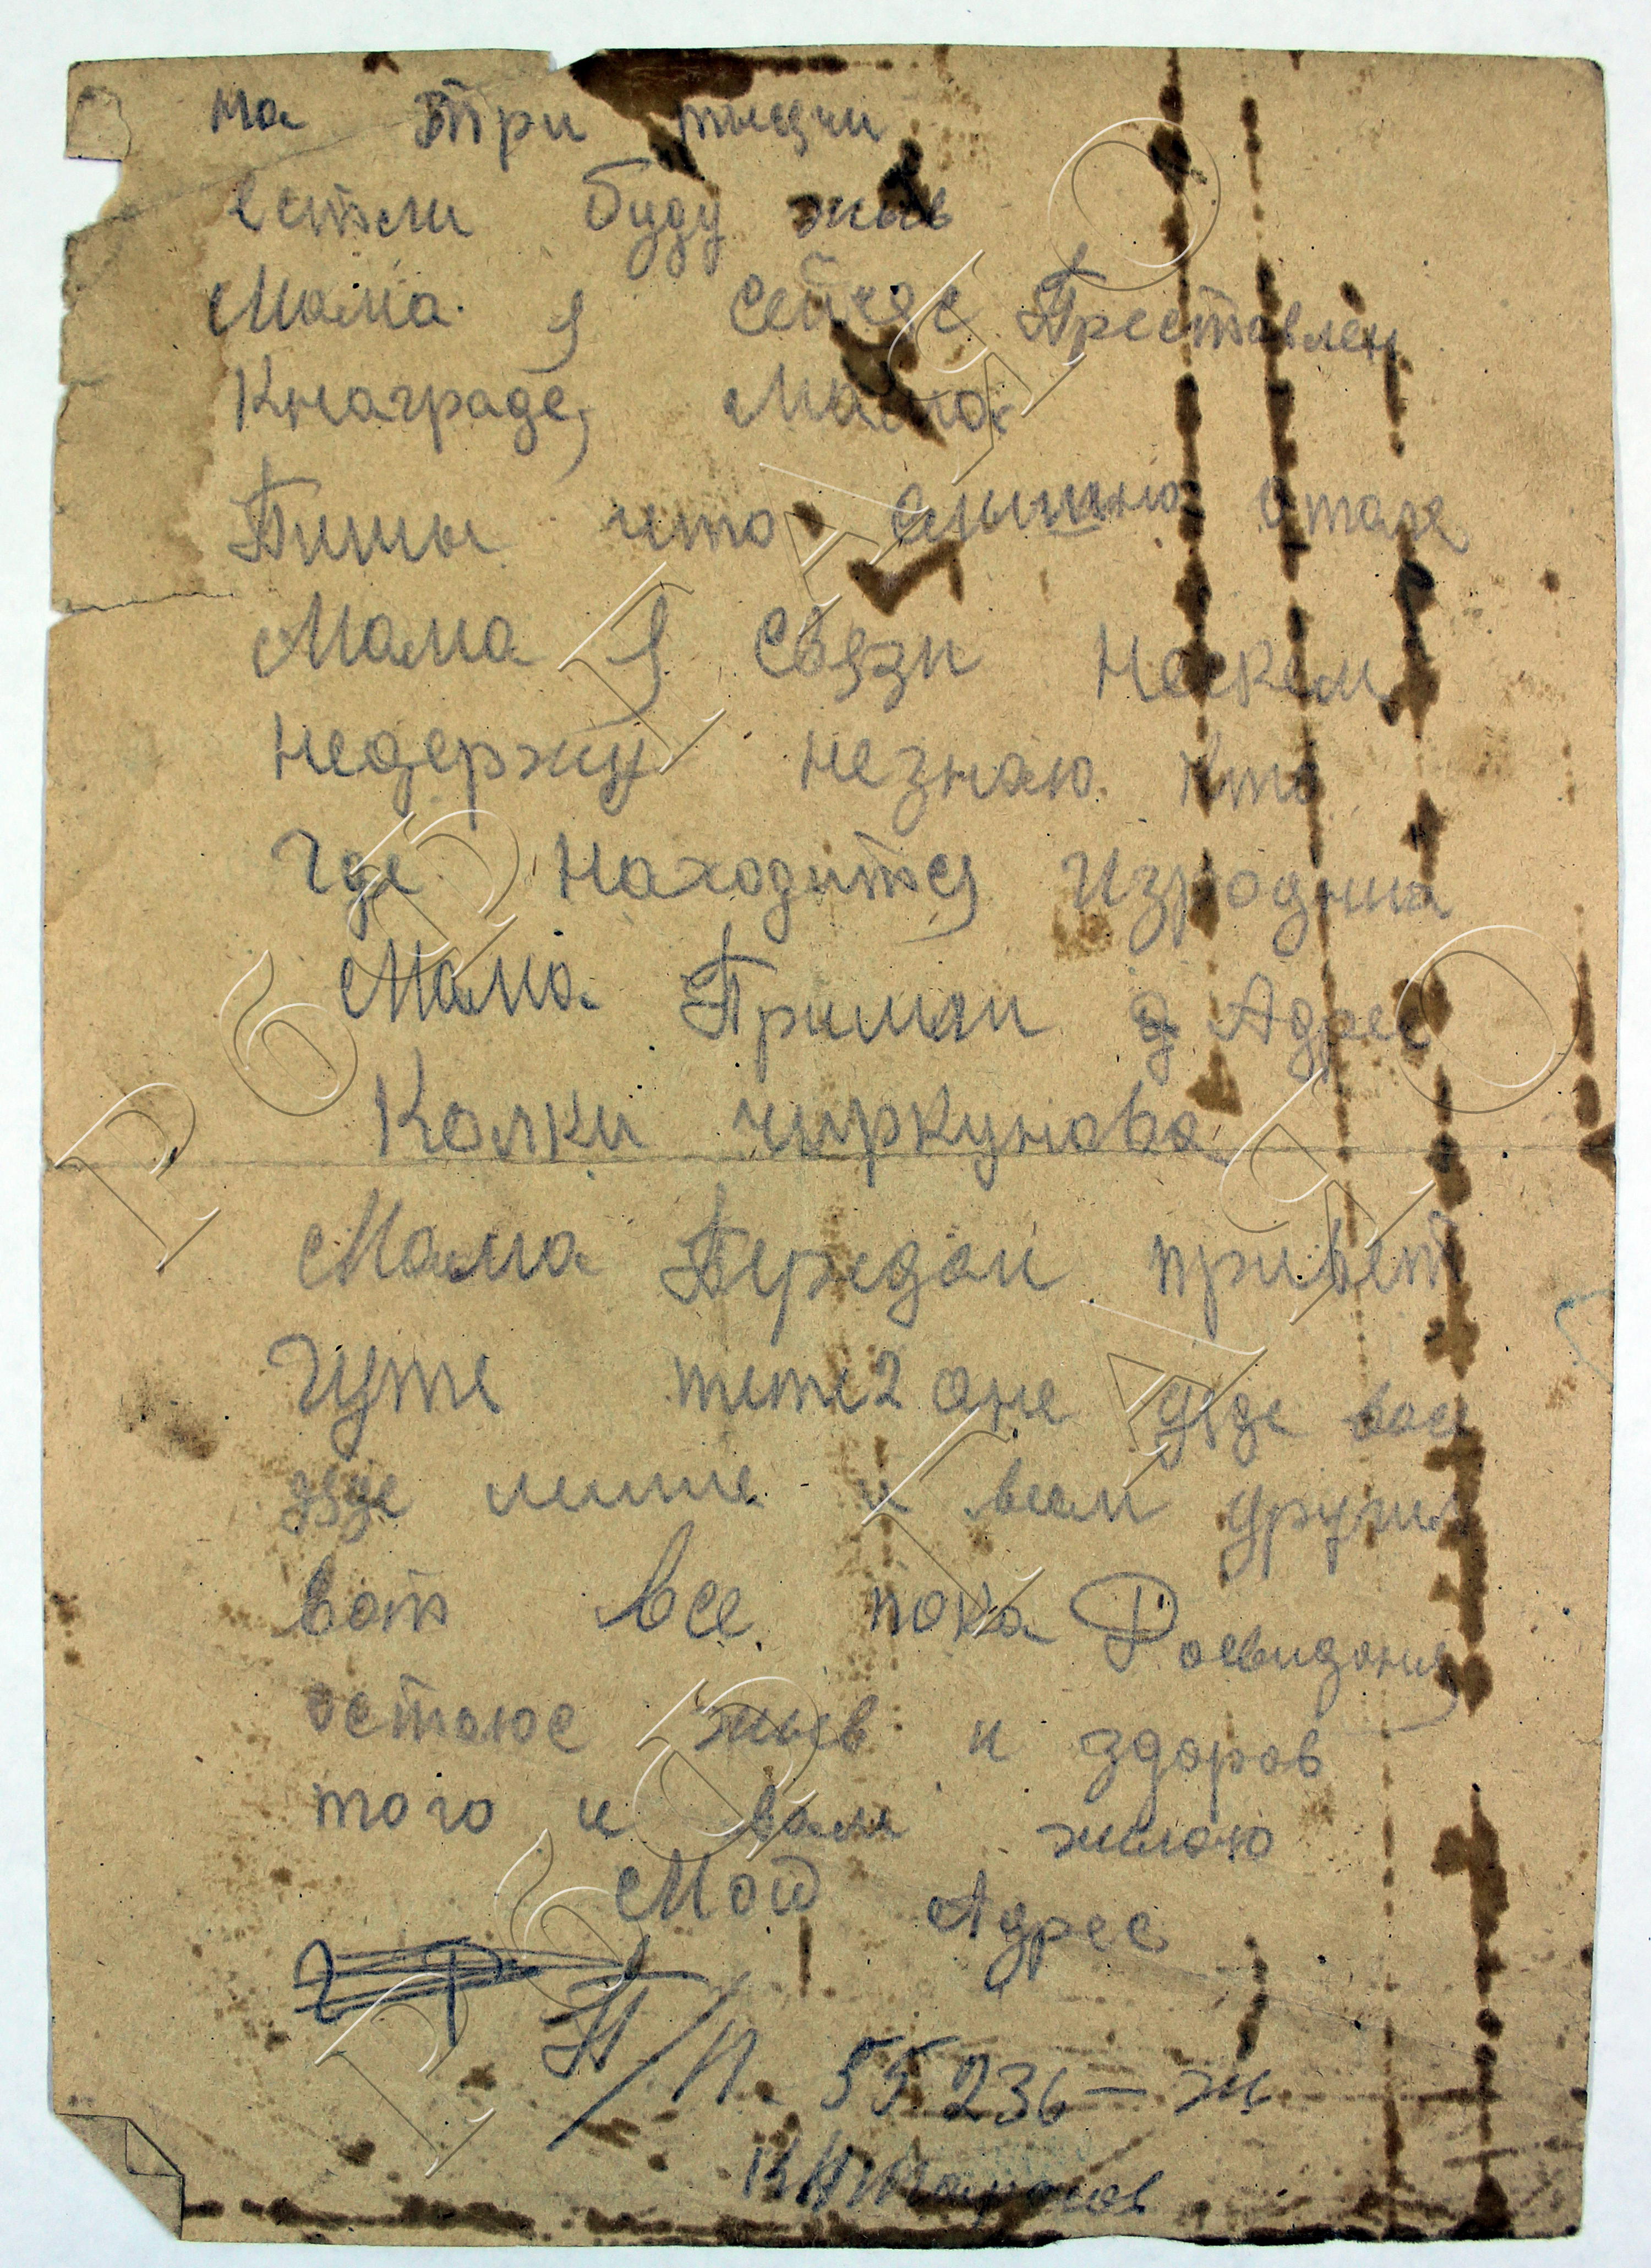 на три тысячи
естли буду жыв
Мама я сейчас Преставлен
Кнаграде, Мама
Пишы что слышно оталя
Мама я связи нескем
недержу незнаю кто
Где находится Изродныа
Мама Пришли Адрес
Колки чиркунова
Мама Передай привет
Гуте тете дяде васе
дяде мише и всем другим
вот все пока Досвидания
остаюс жыв и здоров
того и вам жилаю
Мой Адрес
П/П. 55236-ж